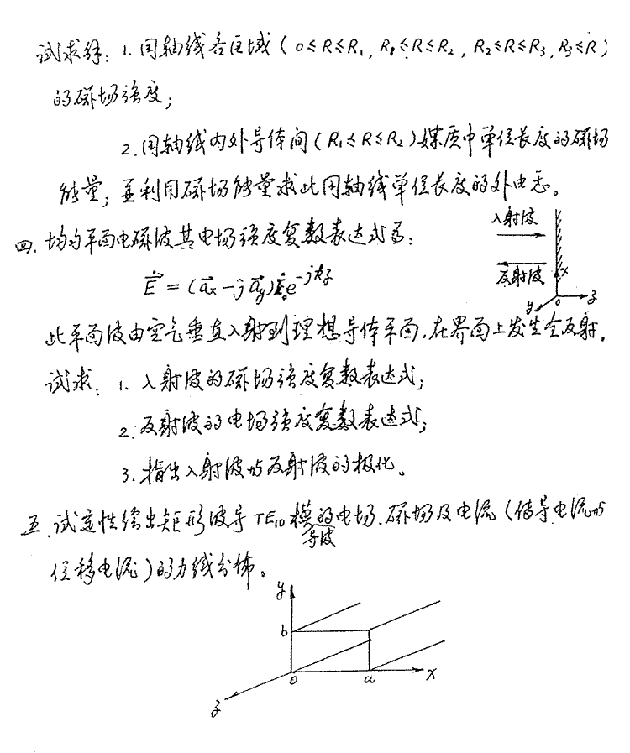 试求解：1. 同轴线各区域（0≤R≤R₁，R₁≤R≤R₂，R₂≤R≤R₃，R₃≤R）
的磁场强度；
2. 同轴线内外导体间（R₁≤R≤R₂）媒质中单位长度的磁场
能量；并利用磁场能量求此同轴线单位长度的外电感。
四. 均匀平面电磁波其电场强度复数表达式为：
E⃗ = (a⃗ₓ − j a⃗ᵧ) E₀ e^{-jkz}
入射波
反射波
x
y
o
z
此平面波由空气垂直入射到理想导体平面，在界面上发生全反射。
试求：1. 入射波的磁场强度复数表达式；
2. 反射波的电场强度复数表达式；
3. 指出入射波与反射波的极化。
五. 试定性绘出矩形波导TE₁₀模的电场、磁场及电流（传导电流与
导波
位移电流）的力线分布。
y
b
o
a
x
z